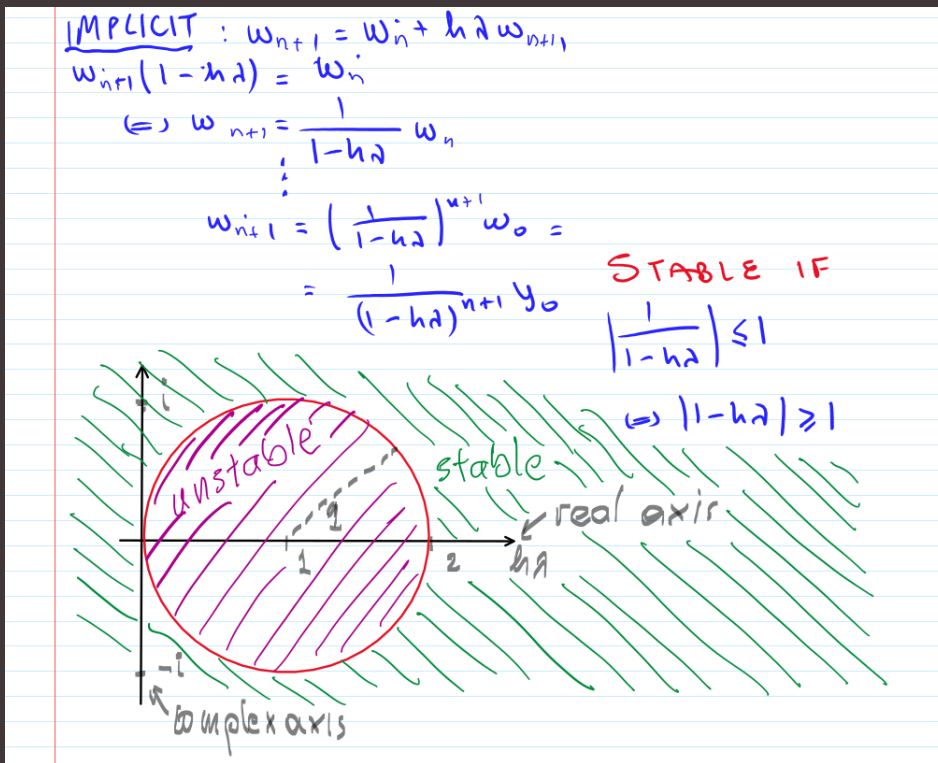 IMPLICIT : wₙ₊₁ = wₙ + hλwₙ₊₁,
wₙ₊₁(1-hλ) = wₙ
⇔ wₙ₊₁ = 1/(1-hλ) wₙ
⋮
wₙ₊₁ = (1/(1-hλ))ⁿ⁺¹ w₀ =
= 1/(1-hλ)ⁿ⁺¹ y₀
STABLE IF
|1/(1-hλ)| ≤ 1
⇔ |1-hλ| ≥ 1
i
unstable
stable
1
real axis
1
2
hλ
-i
complex axis